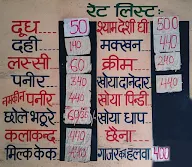 रेट लिस्ट:-
दूध 50 श्याम देशी घी 500
दही 140 मक्खन 440
लस्सी 60 क्रीम 240
पनीर 340 सोया दानेदार 440
नमकीन पनीर 440 सोया पिंडी
छोले भटूरे सोया चाप
कलाकन्द 440 छैना
मिल्क केक 440 गाजर का हलवा 400